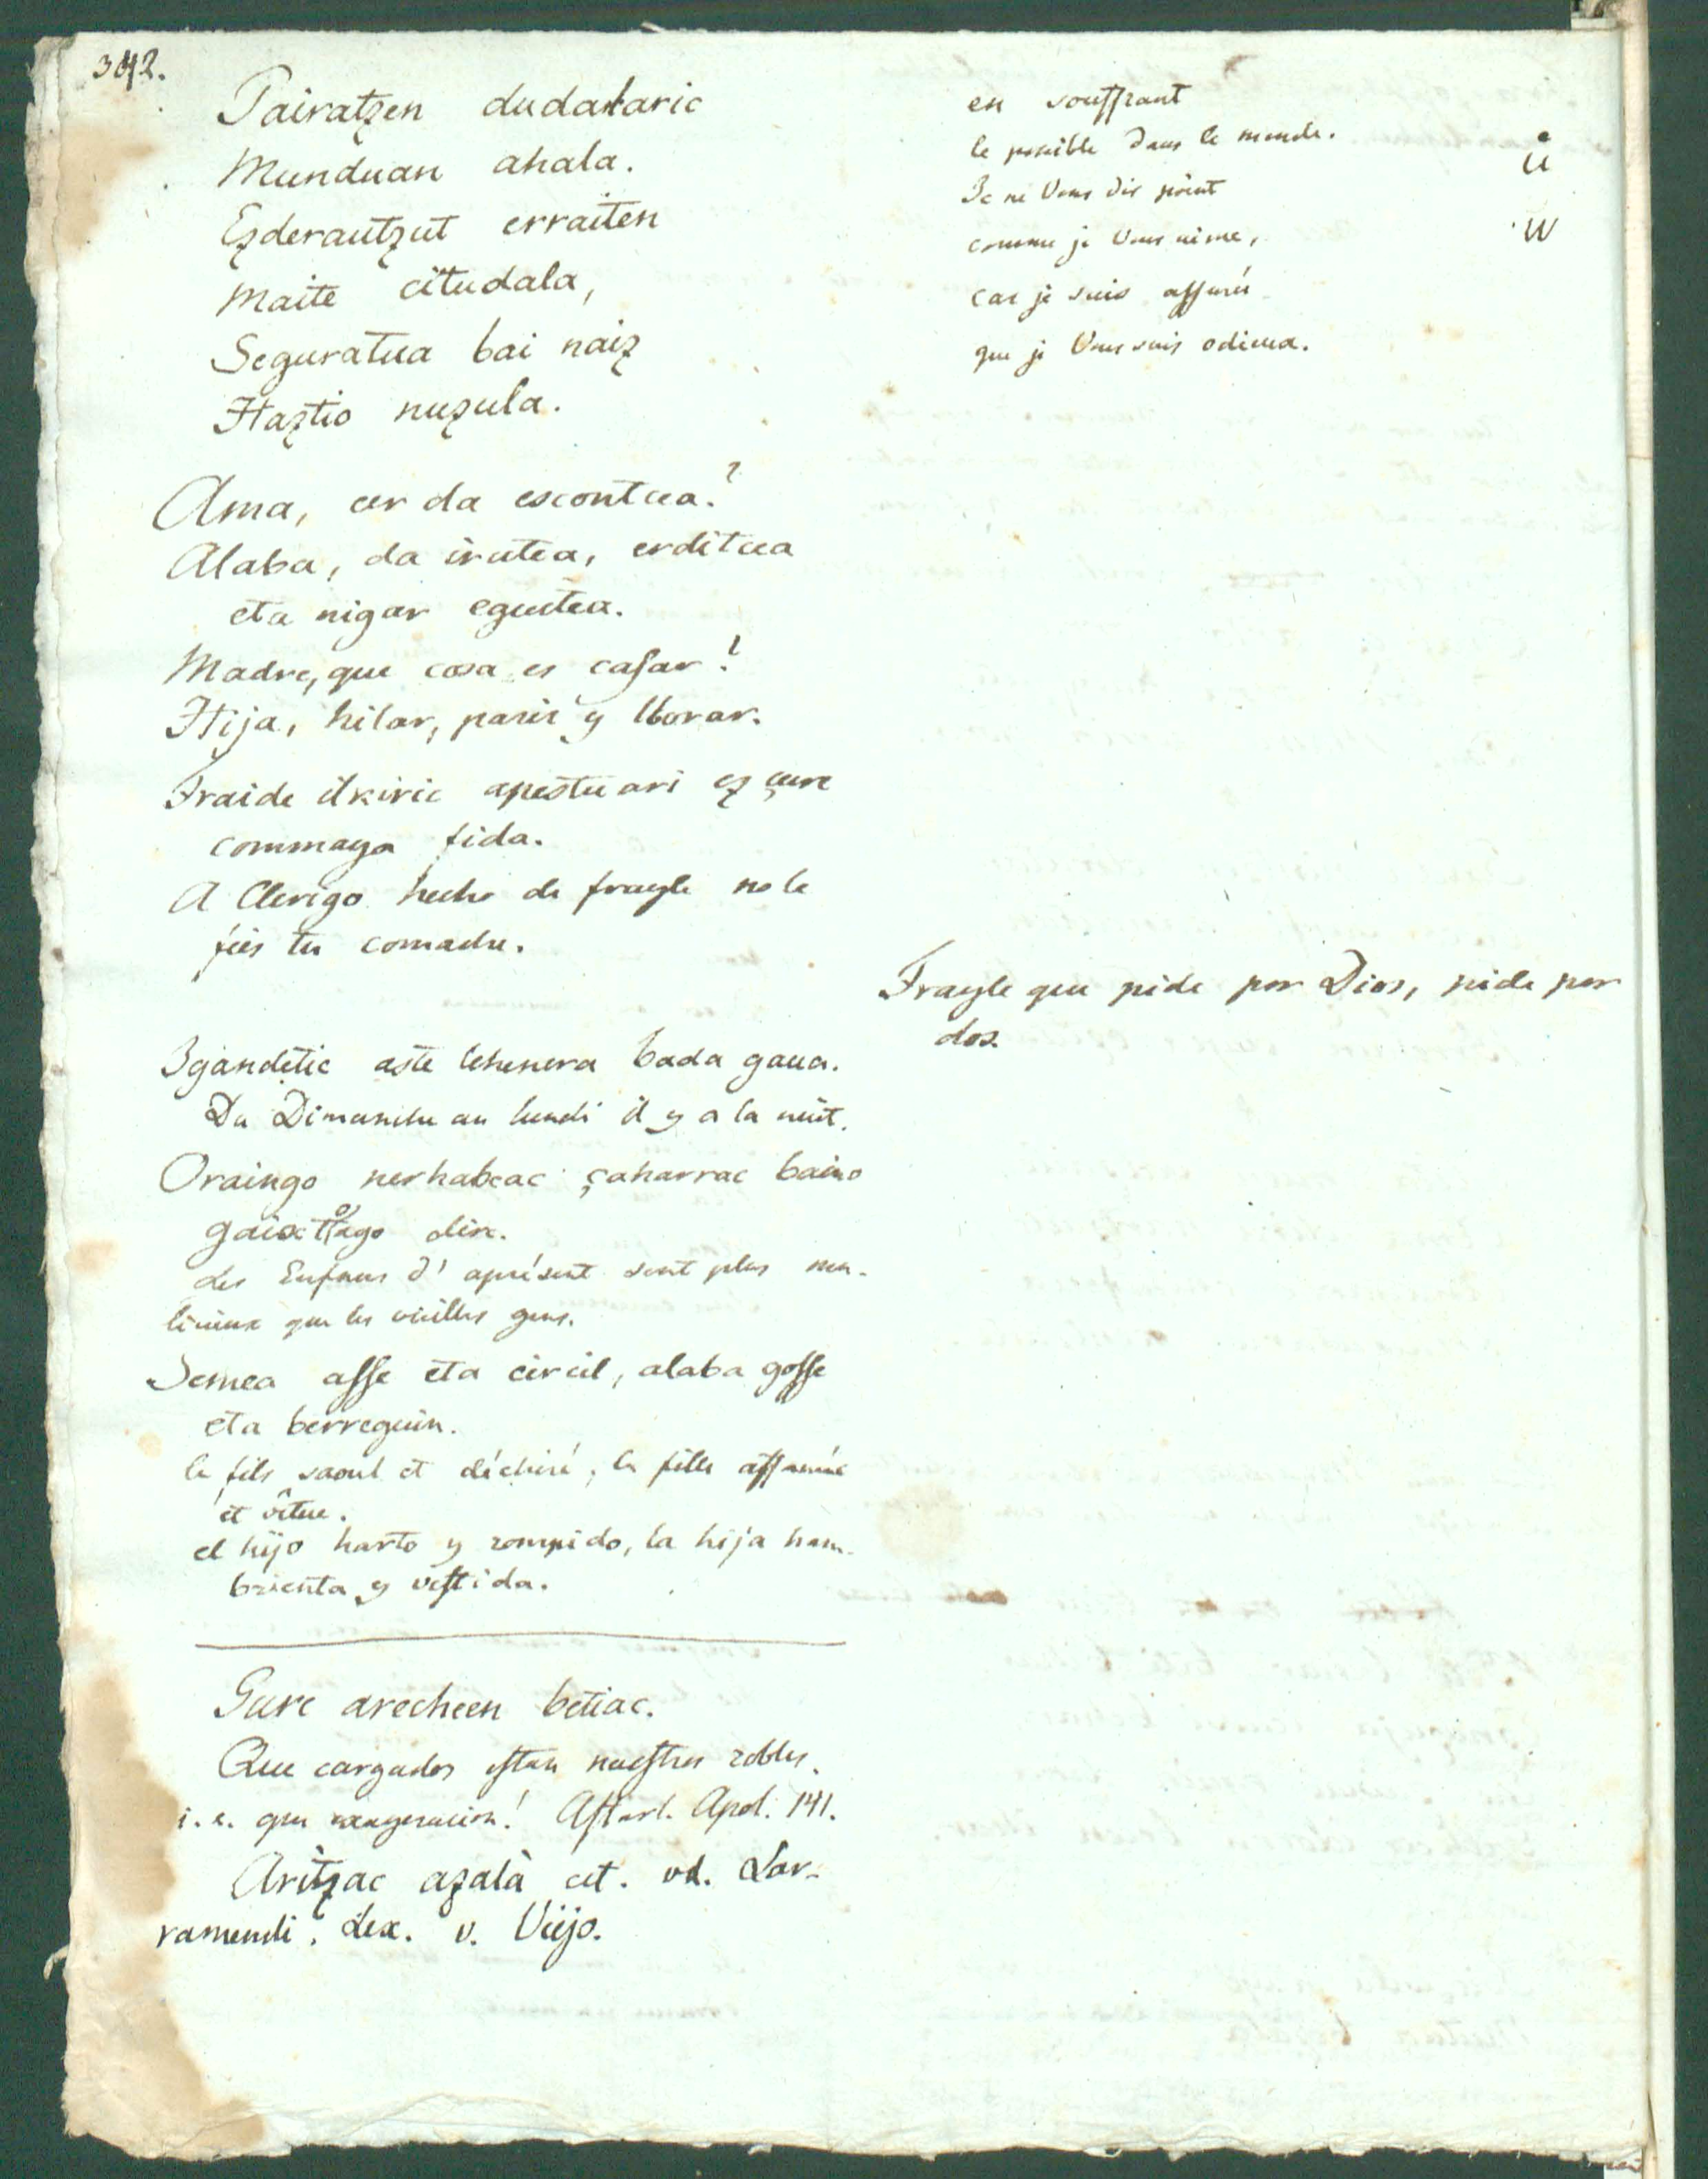 342.
Pairatzen dudalaric
Munduan ahala.
Ezderautzut erraiten
Maite citudala,
Seguratua bai naiz
Haztio nuzula.
en souffrant
le possible dans le monde.
Je ne Vous dis point
comme je Vous aime,
car je suis assuré
que je Vous suis odieux.
Ama, cer da escontcea?
Alaba, da irutea, erditcea
eta nigar eguitea.
Madre, que cosa es casar?
Hija, hilar, parir y llorar.
Fraide ilkiric apestuari ez çure
commaya fida.
A Clerigo hecho de frayle no le
fies tu comadre.
Frayle que pide por Dios, pide por
dos.
Igandetic aste lehenera bada gaua.
Du Dimanche au lundi il y a la nuit.
Oraingo nerhabeac çaharrac baino
dire.
des Enfans d' aprésent sont plus ma-
licieux que les vieilles gens.
Semea asse eta circil, alaba gosse
eta berreguin.
le fils saoul et déchiré, la fille affamée
et vêtue.
el hijo harto y rompido, la hija ham-
brienta y vestida.
Gure arecheen betiac.
Que cargados estan nuestros robles.
i. e. que exageracion! Astarl. Apol. 141.
Aritzac azalà cet. vd. Lar-
ramendi. Lex. v. Viejo.